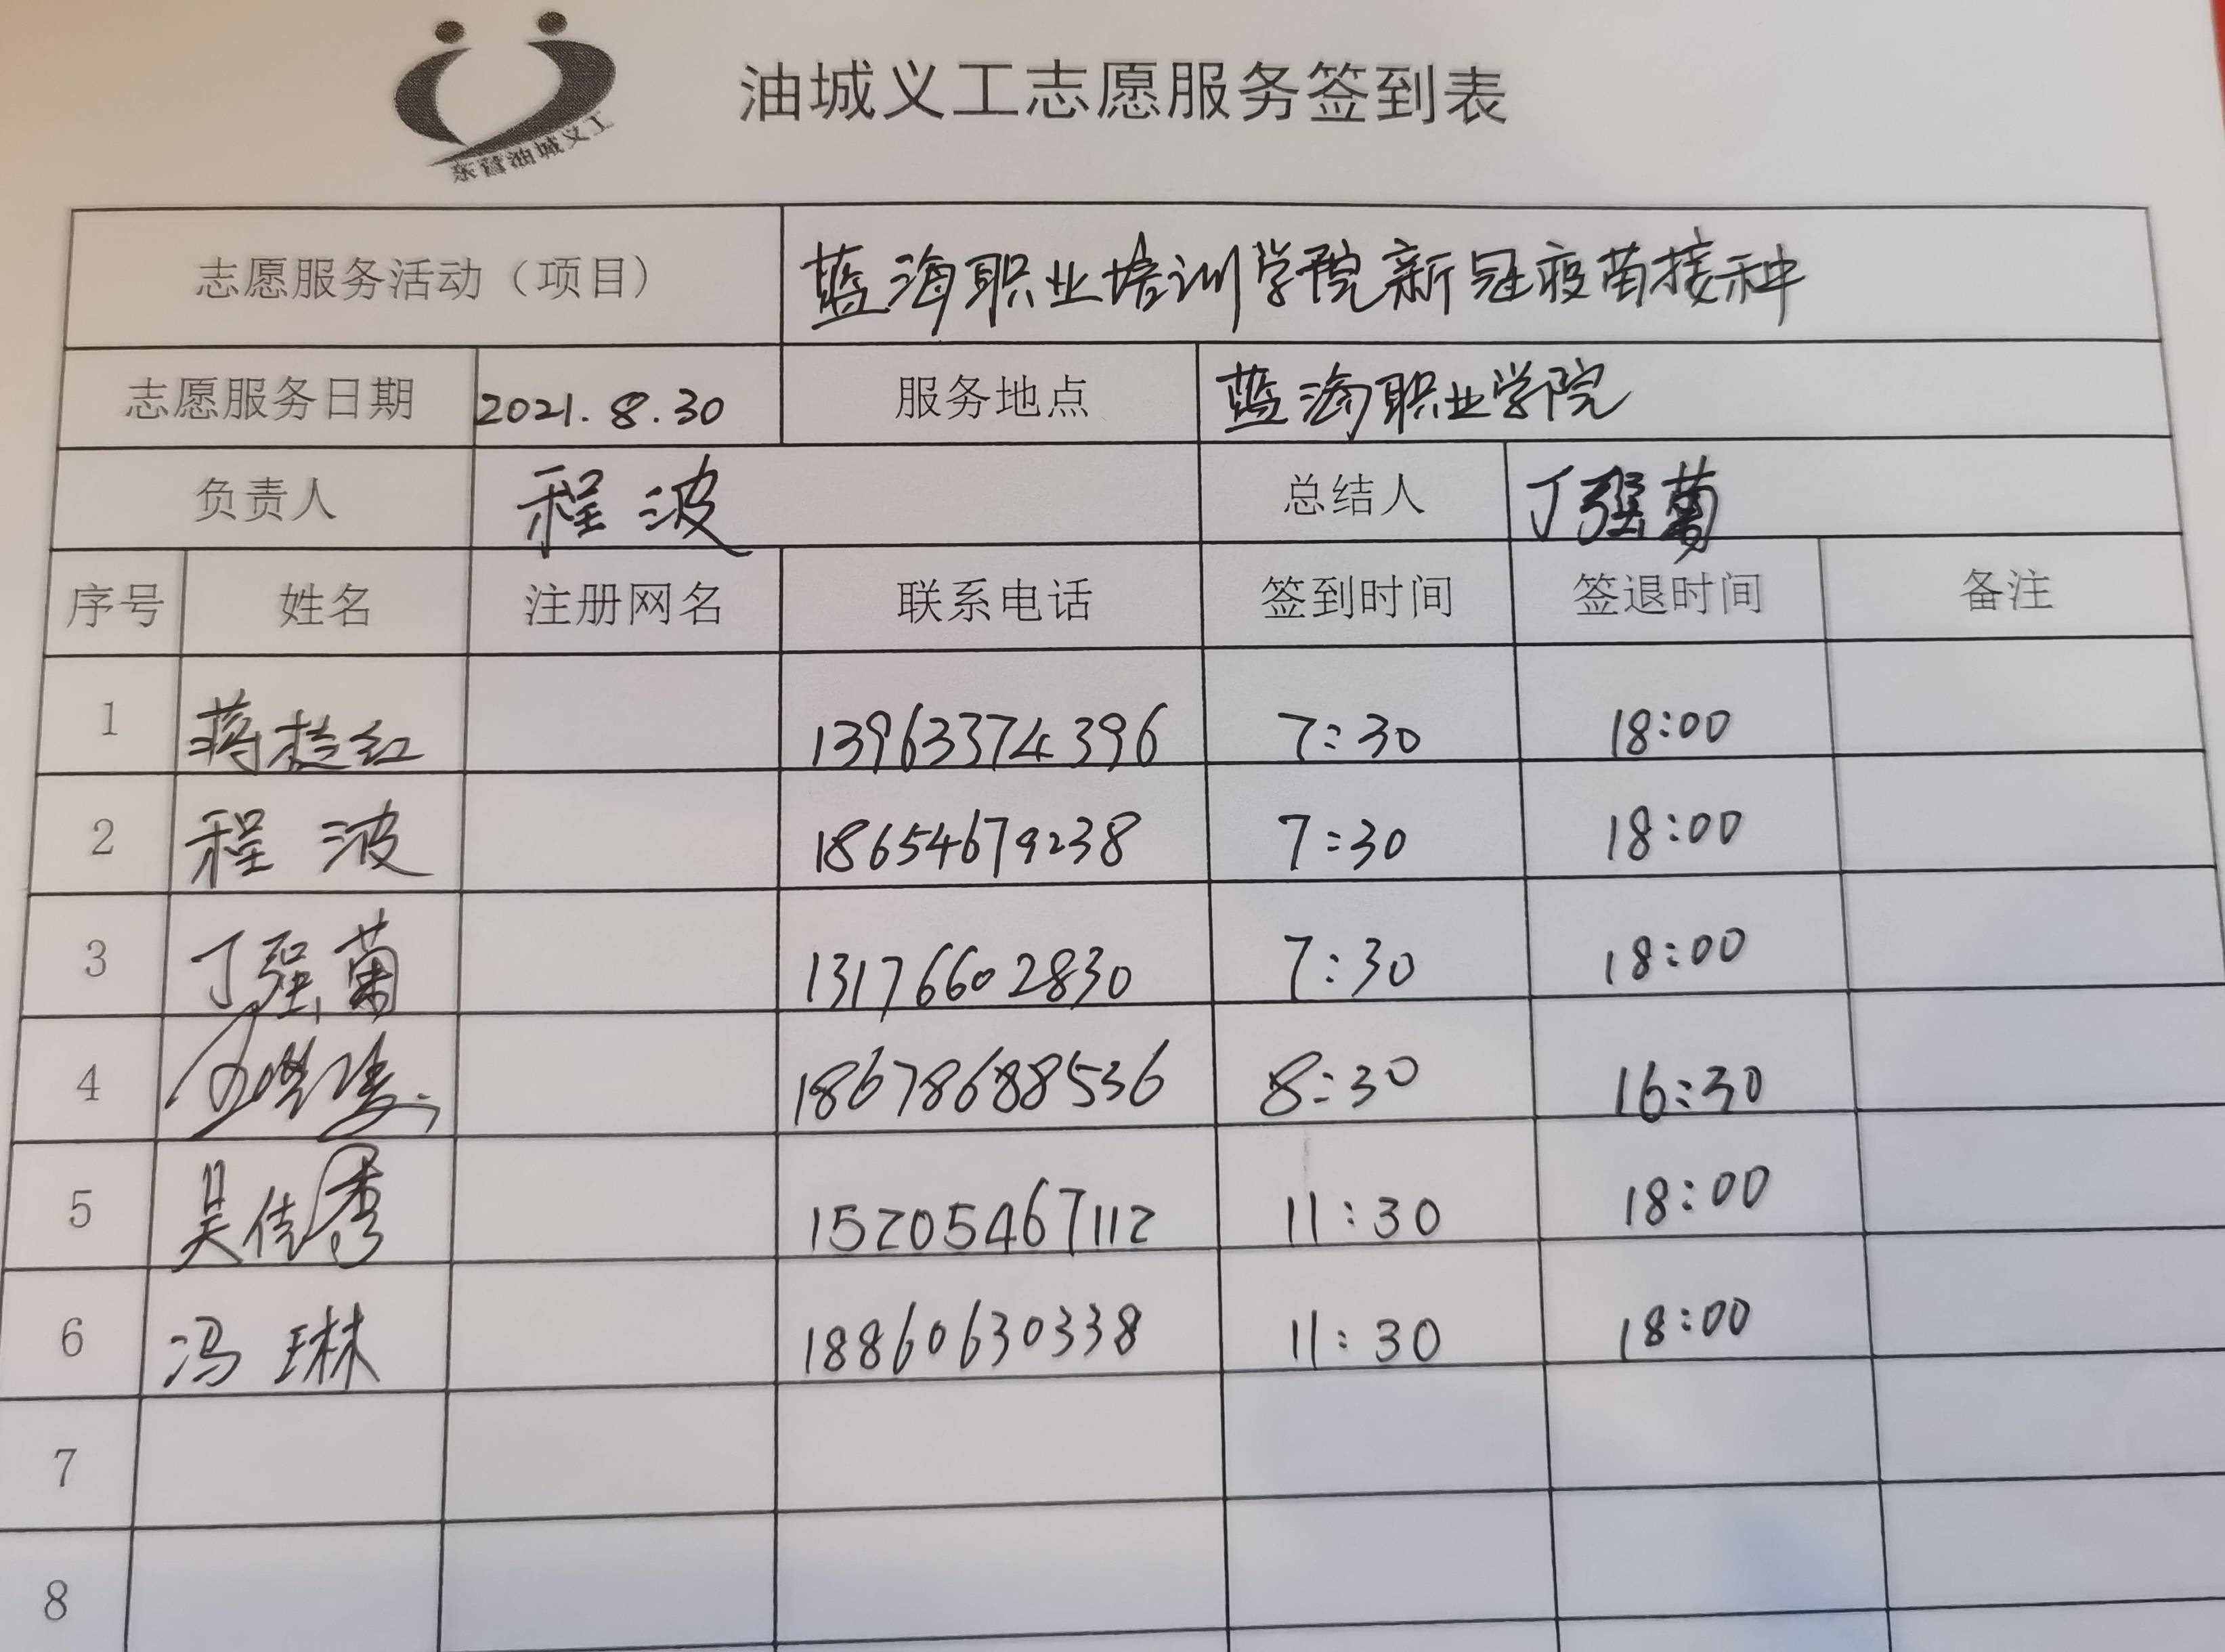 东营油城义工
油城义工志愿服务签到表
志愿服务活动（项目） 蓝海职业培训学院新冠疫苗接种
志愿服务日期 2021.8.30 服务地点 蓝海职业学院
负责人 程波 总结人 丁强菊
序号 姓名 注册网名 联系电话 签到时间 签退时间 备注
1 蒋红 13963374396 7:30 18:00
2 程波 18654679238 7:30 18:00
3 丁强菊 13176602830 7:30 18:00
4 18678688536 8:30 16:30
5 吴佳秀 15205467112 11:30 18:00
6 冯琳 18860630338 11:30 18:00
7
8